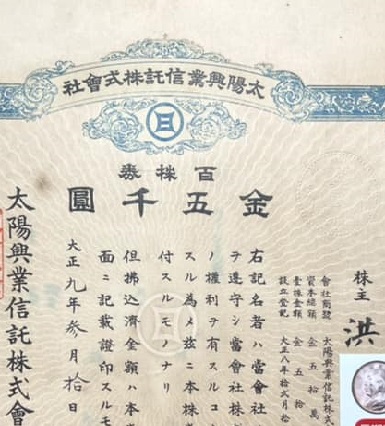 太陽興業信託株式會社
百株券
金五千圓
株主 洪
會社商號 太陽興業信託株式
資本總額 金五拾萬
壹株金額 金五拾
設立登記 大正八年拾弐月拾
右記名者ハ當會社
ヲ遵守シ當會社株
ノ權利ヲ有スルコ
スル爲メ玆ニ本株
付スルモノナリ
但拂込濟金額ハ本
面ニ記載證印スルモ
大正九年參月拾日
太陽興業信託株式會